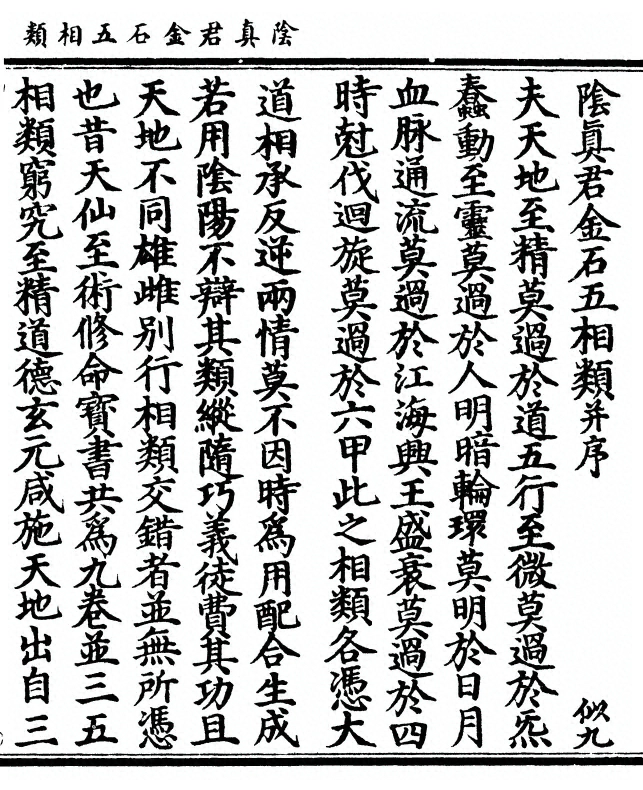 陰真君金石五相類
陰真君金石五相類并序 似九
夫天地至精莫過於道五行至微莫過於炁
蠢動至靈莫過於人明暗輪環莫明於日月
血脉通流莫過於江海興王盛衰莫過於四
時尅伐迴旋莫過於六甲此之相類各憑大
道相承反逆兩情莫不因時爲用配合生成
若用陰陽不辯其類縱隨巧義徒費其功且
天地不同雄雌别行相類交錯者並無所憑
也昔天仙至術修命寶書共爲九卷並三五
相類窮究至精道德玄元咸施天地出自三